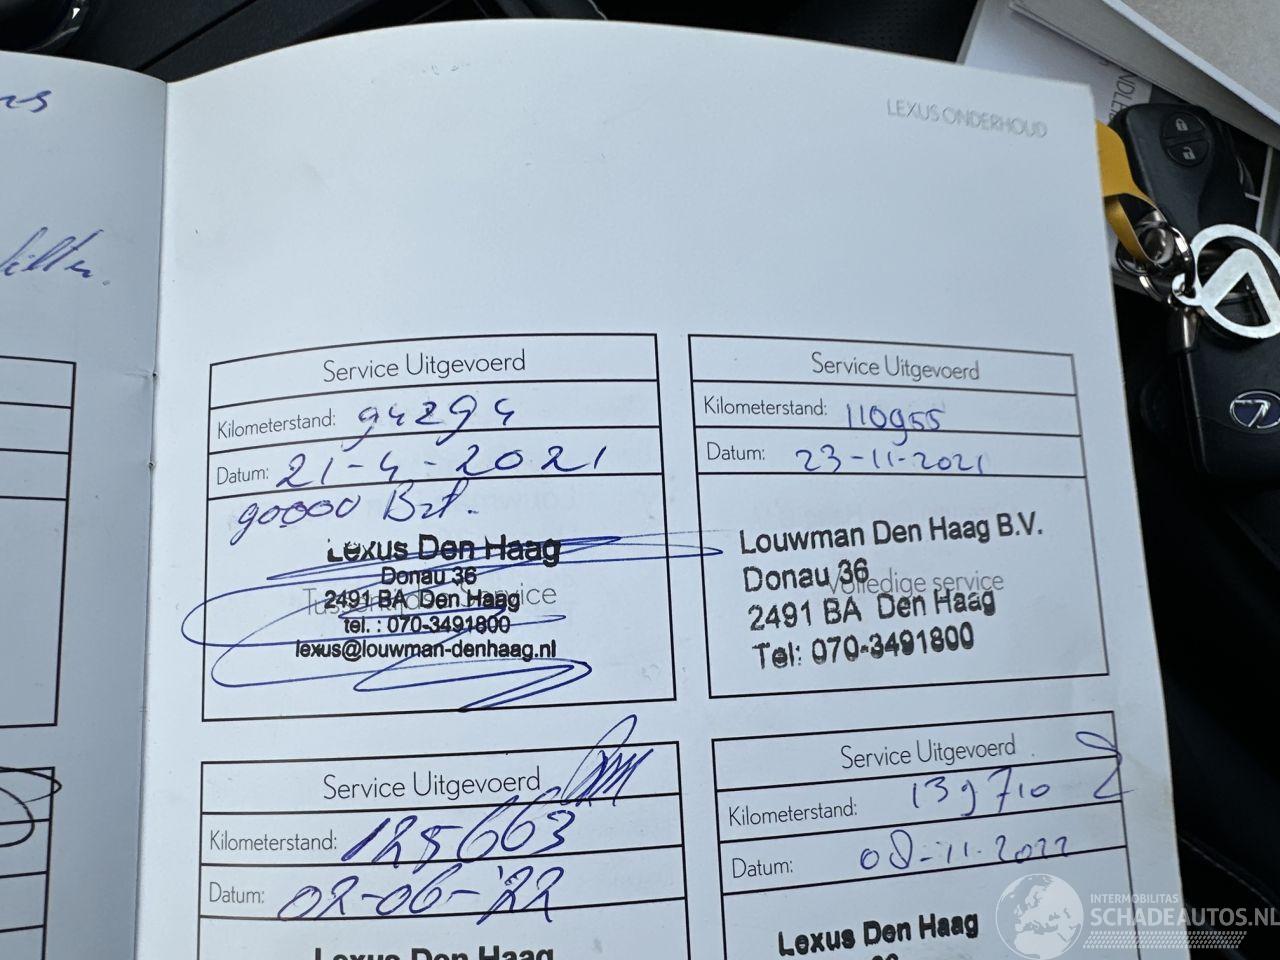 LEXUS ONDERHOUD
Service Uitgevoerd
Kilometerstand: 94294
Datum: 21-4-2021
90000 Bzt.
Lexus Den Haag
Donau 36
2491 BA Den Haag
tel. : 070-3491800
lexus@louwman-denhaag.nl
Service Uitgevoerd
Kilometerstand: 110955
Datum: 23-11-2021
Louwman Den Haag B.V.
Donau 36
Volledige service
2491 BA Den Haag
Tel: 070-3491800
Service Uitgevoerd
Kilometerstand: 125663
Datum: 02-06-'22
Lexus Den Haag
Service Uitgevoerd
Kilometerstand: 139710
Datum: 08-11-2022
Lexus Den Haag
INTERMOBILITAS
SCHADEAUTOS.NL